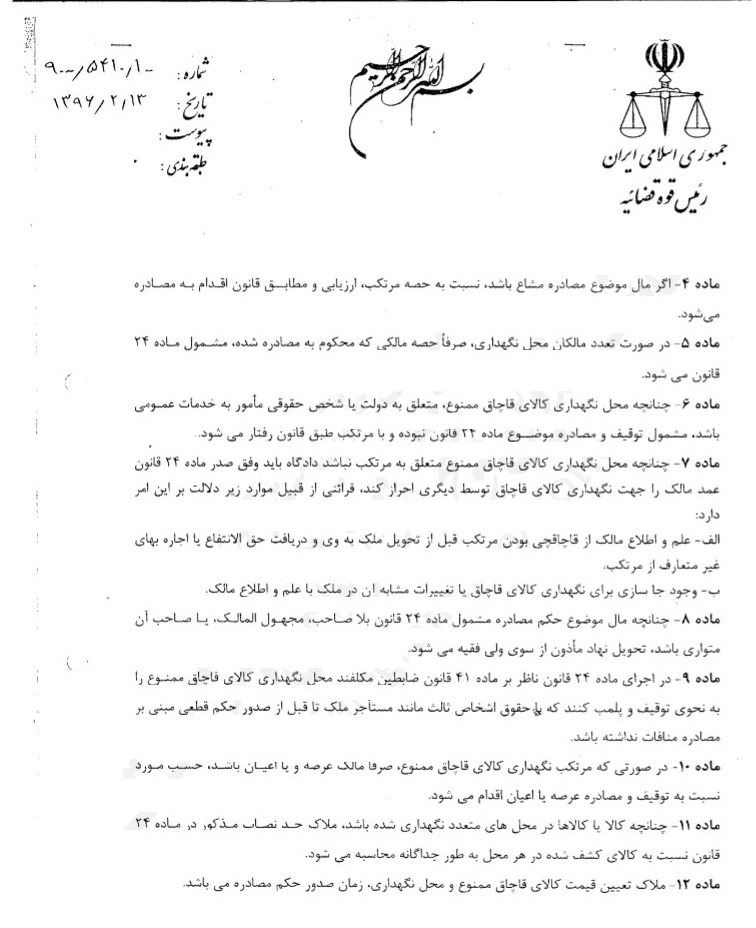 بسم الله الرحمن الرحیم
جمهوری اسلامی ایران
رئیس قوه قضائیه
شماره: ۹۰۰۰/۵۴۱۰/۱۰۰
تاریخ: ۱۳۹۶/۲/۱۳
پیوست:
طبقه بندی:
ماده ۴- اگر مال موضوع مصادره مشاع باشد، نسبت به حصه مرتکب، ارزیابی و مطابق قانون اقدام به مصادره
می‌شود.
ماده ۵- در صورت تعدد مالکان محل نگهداری، صرفاً حصه مالکی که محکوم به مصادره شده، مشمول ماده ۲۴
قانون می شود.
ماده ۶- چنانچه محل نگهداری کالای قاچاق ممنوع، متعلق به دولت یا شخص حقوقی مأمور به خدمات عمومی
باشد، مشمول توقیف و مصادره موضوع ماده ۲۴ قانون نبوده و با مرتکب طبق قانون رفتار می شود..
ماده ۷- چنانچه محل نگهداری کالای قاچاق ممنوع متعلق به مرتکب نباشد دادگاه باید وفق صدر ماده ۲۴ قانون
عمد مالک را جهت نگهداری کالای قاچاق توسط دیگری احراز کند، قرائنی از قبیل موارد زیر دلالت بر این امر
دارد:
الف- علم و اطلاع مالک از قاچاقچی بودن مرتکب قبل از تحویل ملک به وی و دریافت حق الانتفاع یا اجاره بهای
غیر متعارف از مرتکب.
ب- وجود جا سازی برای نگهداری کالای قاچاق یا تغییرات مشابه آن در ملک با علم و اطلاع مالک.
ماده ۸- چنانچه مال موضوع حکم مصادره مشمول ماده ۲۴ قانون بلا صاحب، مجهول المالک، یا صاحب آن
متواری باشد، تحویل نهاد مأذون از سوی ولی فقیه می شود.
ماده ۹- در اجرای ماده ۲۴ قانون ناظر بر ماده ۴۱ قانون ضابطین مکلفند محل نگهداری کالای قاچاق ممنوع را
به نحوی توقیف و پلمب کنند که با حقوق اشخاص ثالث مانند مستأجر ملک تا قبل از صدور حکم قطعی مبنی بر
مصادره منافات نداشته باشد.
ماده ۱۰- در صورتی که مرتکب نگهداری کالای قاچاق ممنوع، صرفا مالک عرصه و یا اعیان باشد، حسب مورد
نسبت به توقیف و مصادره عرصه یا اعیان اقدام می شود.
ماده ۱۱- چنانچه کالا یا کالاها در محل های متعدد نگهداری شده باشد، ملاک حد نصاب مذکور در ماده ۲۴
قانون نسبت به کالای کشف شده در هر محل به طور جداگانه محاسبه می شود.
ماده ۱۲- ملاک تعیین قیمت کالای قاچاق ممنوع و محل نگهداری، زمان صدور حکم مصادره می باشد.